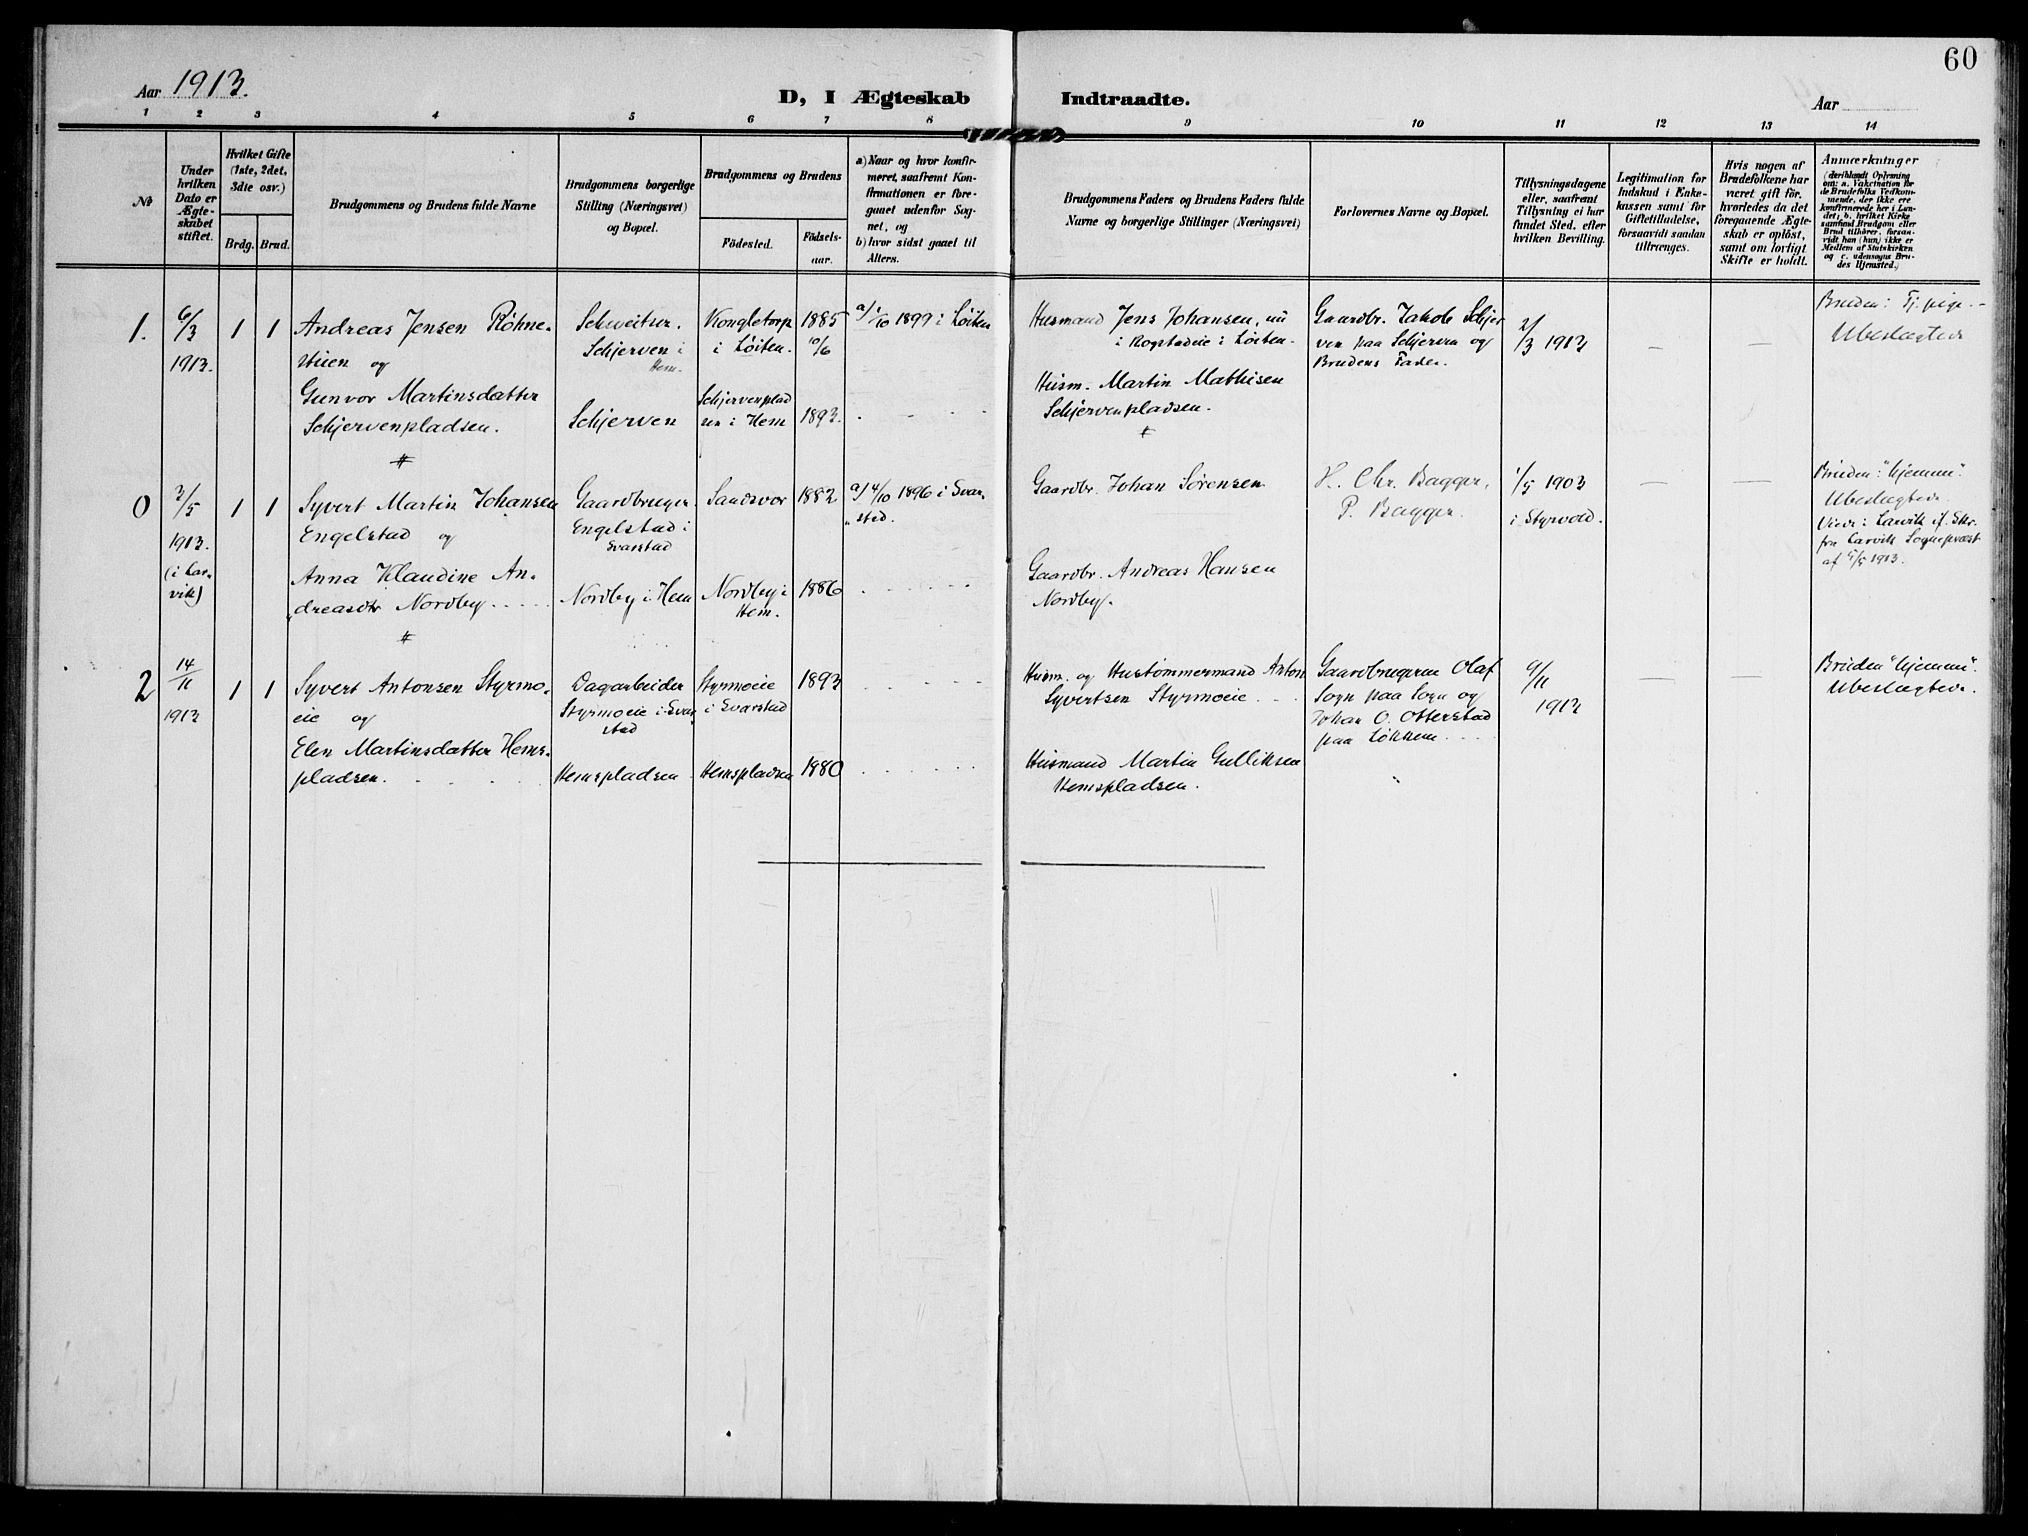 60
Aar 1913.
D, I Ægteskab Indtraadte.
Aar
1 2 3 4 5 6 7 8 9 10 11 12 13 14
No
Under
hvilken
Dato er
Ægte-
skabet
stiftet.
Hvilket Gifte
(1ste, 2det,
3die osv.)
Brdg. Brud.
Brudgommens og Brudens fulde Navne
Brudgommens borgerlige
Stilling (Næringsvei)
og Bopæl.
Brudgommens og Brudens
Födested.
Födsels-
aar.
a) Naar og hvor konfir-
meret, saafremt Kon-
firmationen er fore-
gaaet udenfor Sog-
net, og
b) hvor sidst gaaet til
Alters.
Brudgommens Faders og Brudens Faders fulde
Navne og borgerlige Stillinger (Næringsvei)
Forlovernes Navne og Bopæl.
Tillysningsdagene
eller, saafremt
Tillysning ei har
fundet Sted, efter
hvilken Bevilling.
Legitimation for
Indskud i Enke-
kassen samt for
Giftetilladelse,
forsaavidt saadan
tiltrænges.
Hvis nogen af
Brudefolkene har
været gift för,
hvorledes da det
foregaaende Ægte-
skab er oplöst,
samt om lovligt
Skifte er holdt.
Anmærkninger
(deriblandt Oplysning
om: a. Vakcination for
de Brudefolks Vedkom-
mende, der ikke ere
konfirmerede her i Lan-
det; b. hvilket Kirke-
samfund Brudgom eller
Brud tilhører, forsaa-
vidt han (hun) ikke er
Medlem af Statskirken
og c. udensogns Bru-
des Hjemsted.)
1.
6/3
1913.
1 1
Andreas Jensen Röhne-
stuen og
Gunvor Martinsdatter
Schjervenpladsen.
Schweitser.
Schjerven i
Hem.
Schjerven
Kongletorp
i Löiten.
Schjervenplad
sen i Hem
1885
10/6
1893.
a/ 1/10 1899 i Löiten
Husmand Jens Johansen, nu
i Rogstadeie i Löiten.
Husm. Martin Mathisen
Schjervenpladsen.
Gaardbr. Jakob Schjer
ven paa Schjerven og
Brudens Fader.
2/3 1913
Bruden: Tj. pige.
Ubeslægtede
0
3/5
1913.
(i Lar-
vik)
1 1
Syvert Martin Johansen
Engelstad og
Anna Klaudine An-
dreasdtr Nordby
Gaardbruger
Engelstad i
Svarstad
Nordby i Hem
Sandsvor
Nordby i
Hem.
1882
1886
a/ 4/10 1896 i Svar-
stad.
Gaardbr. Johan Sörensen
Gaardbr. Andreas Hansen
Nordby.
H. Chr. Bagger,
P. Bagger.
1/5 1903
i Styrvold.
Bruden: "hjemme".
Ubeslægtede.
Viede i Larvik if. Skr.
fra Larvik Sognepræst
af 5/5 1913.
2
14/11
1913
1 1
Syvert Antonsen Styrmo-
eie og
Elen Martinsdatter Hems-
pladsen.
Dagarbeider
Styrmoeie i Svar
stad
Hemspladsen
Styrmoeie
i Svarstad
Hemspladsen
1893
1880
Husm. og Hustömmermand Anton
Syvertsen Styrmoeie
Husmand Martin Gulliksen
Hemspladsen.
Gaardbrugerne Olaf
Sogn paa Sogn og
Johan O. Otterstad
paa Lökken.
9/11
1913
Bruden "hjemme".
Ubeslægtede.